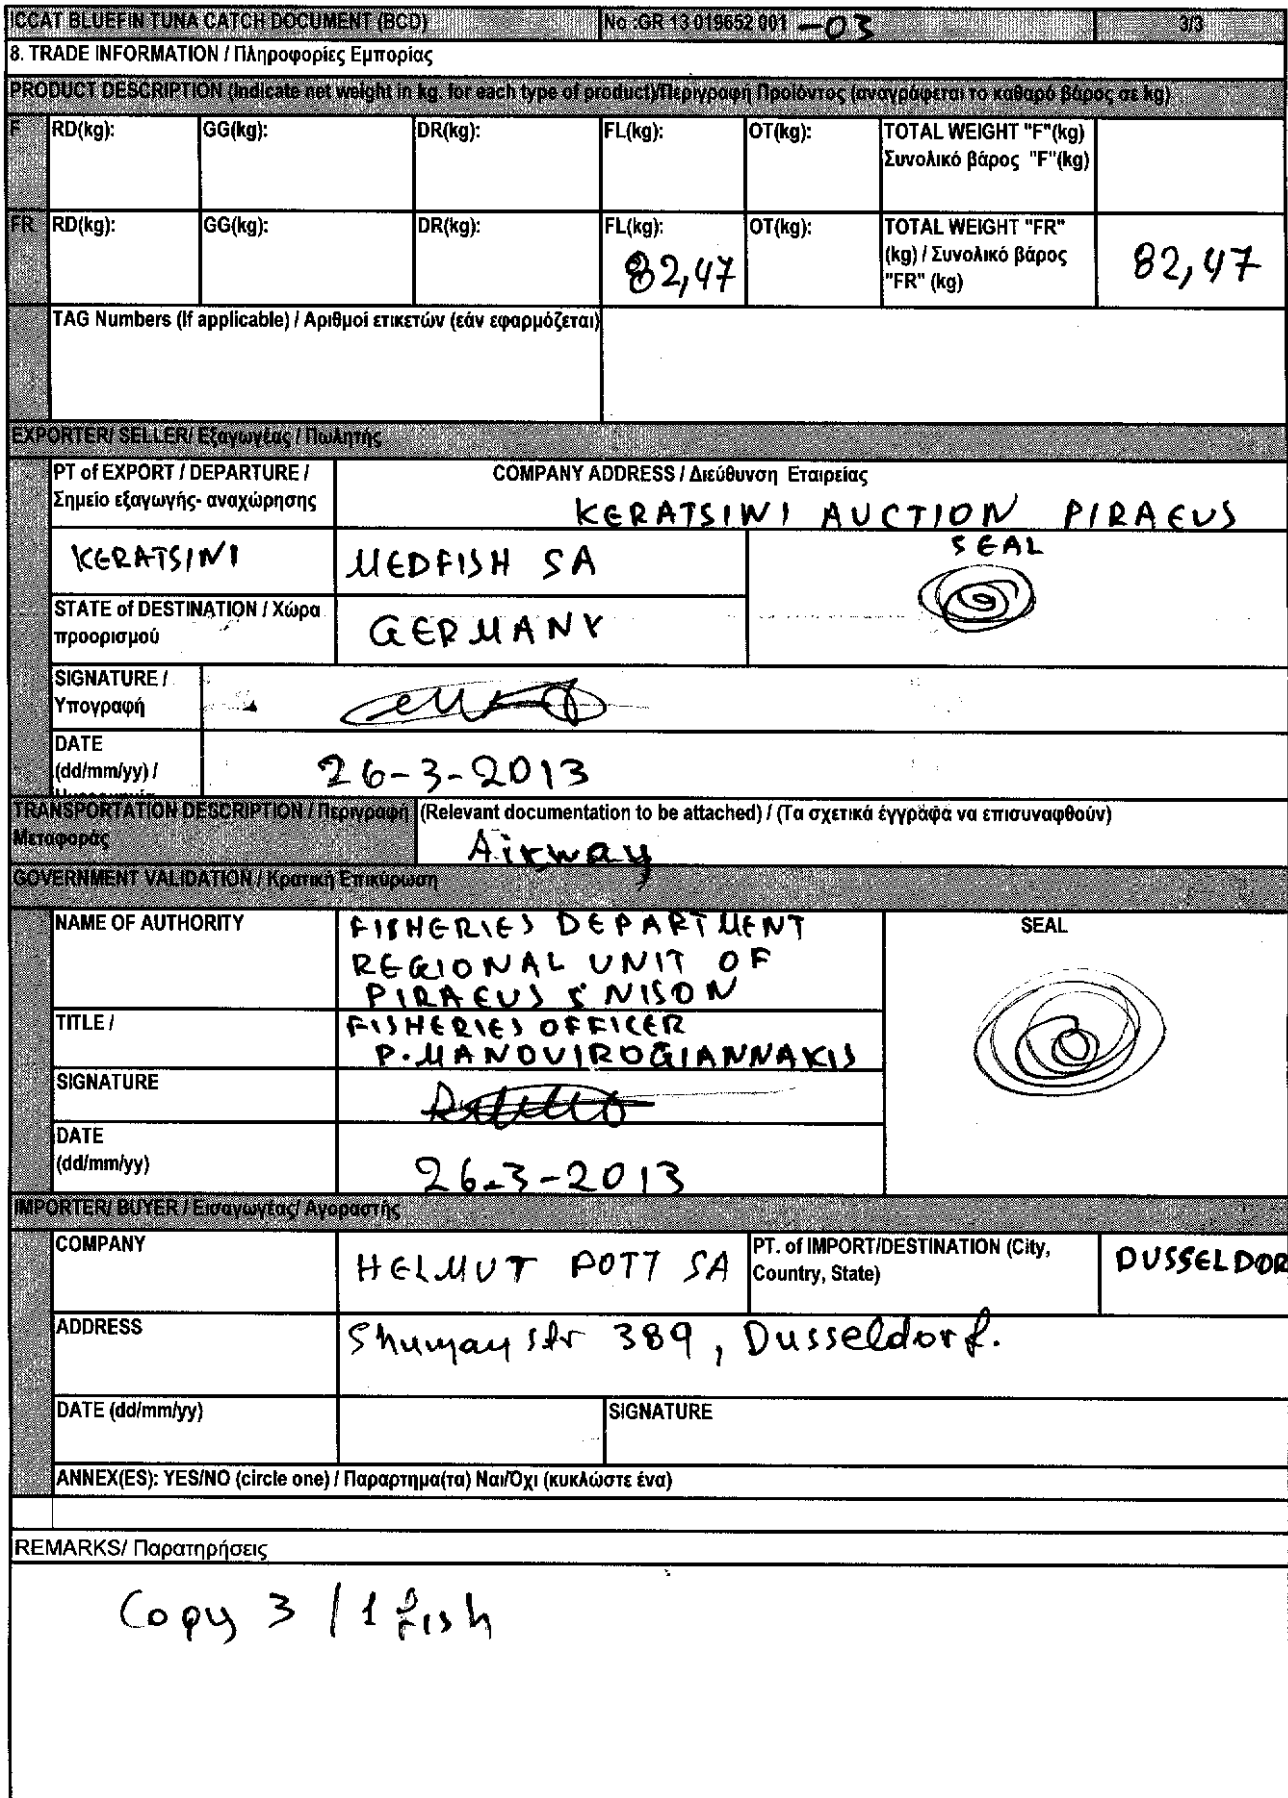 ICCAT BLUEFIN TUNA CATCH DOCUMENT (BCD) No :GR 13 019652 001 -03 3/3
8. TRADE INFORMATION / Πληροφορίες Εμπορίας
PRODUCT DESCRIPTION (Indicate net weight in kg. for each type of product)/Περιγραφή Προϊόντος (αναγράφεται το καθαρό βάρος σε kg)
F RD(kg): GG(kg): DR(kg): FL(kg): OT(kg): TOTAL WEIGHT "F"(kg)
Συνολικό βάρος "F"(kg)
FR RD(kg): GG(kg): DR(kg): FL(kg): OT(kg): TOTAL WEIGHT "FR"
(kg) / Συνολικό βάρος
"FR" (kg)
82,47 82,47
TAG Numbers (If applicable) / Αριθμοί ετικετών (εάν εφαρμόζεται)
EXPORTER/ SELLER/ Εξαγωγέας / Πωλητής
PT of EXPORT / DEPARTURE / COMPANY ADDRESS / Διεύθυνση Εταιρείας
Σημείο εξαγωγής- αναχώρησης
KERATSINI AUCTION PIRAEUS
KERATSINI MEDFISH SA SEAL
STATE of DESTINATION / Χώρα
προορισμού
GERMANY
SIGNATURE /
Υπογραφή
DATE
(dd/mm/yy) /
26-3-2013
TRANSPORTATION DESCRIPTION / Περιγραφή (Relevant documentation to be attached) / (Τα σχετικά έγγραφα να επισυναφθούν)
Μεταφοράς
Airway
GOVERNMENT VALIDATION / Κρατική Επικύρωση
NAME OF AUTHORITY FISHERIES DEPARTMENT SEAL
REGIONAL UNIT OF
PIRAEUS & NISON
TITLE / FISHERIES OFFICER
P. MANOVIROGIANNAKIS
SIGNATURE
DATE
(dd/mm/yy)
26-3-2013
IMPORTER/ BUYER / Εισαγωγέας/ Αγοραστής
COMPANY HELMUT POTT SA PT. of IMPORT/DESTINATION (City,
Country, State)
DUSSELDOR
ADDRESS 389, Dusseldorf.
DATE (dd/mm/yy) SIGNATURE
ANNEX(ES): YES/NO (circle one) / Παραρτημα(τα) Ναι/Όχι (κυκλώστε ένα)
REMARKS/ Παρατηρήσεις
Copy 3 / 1 fish